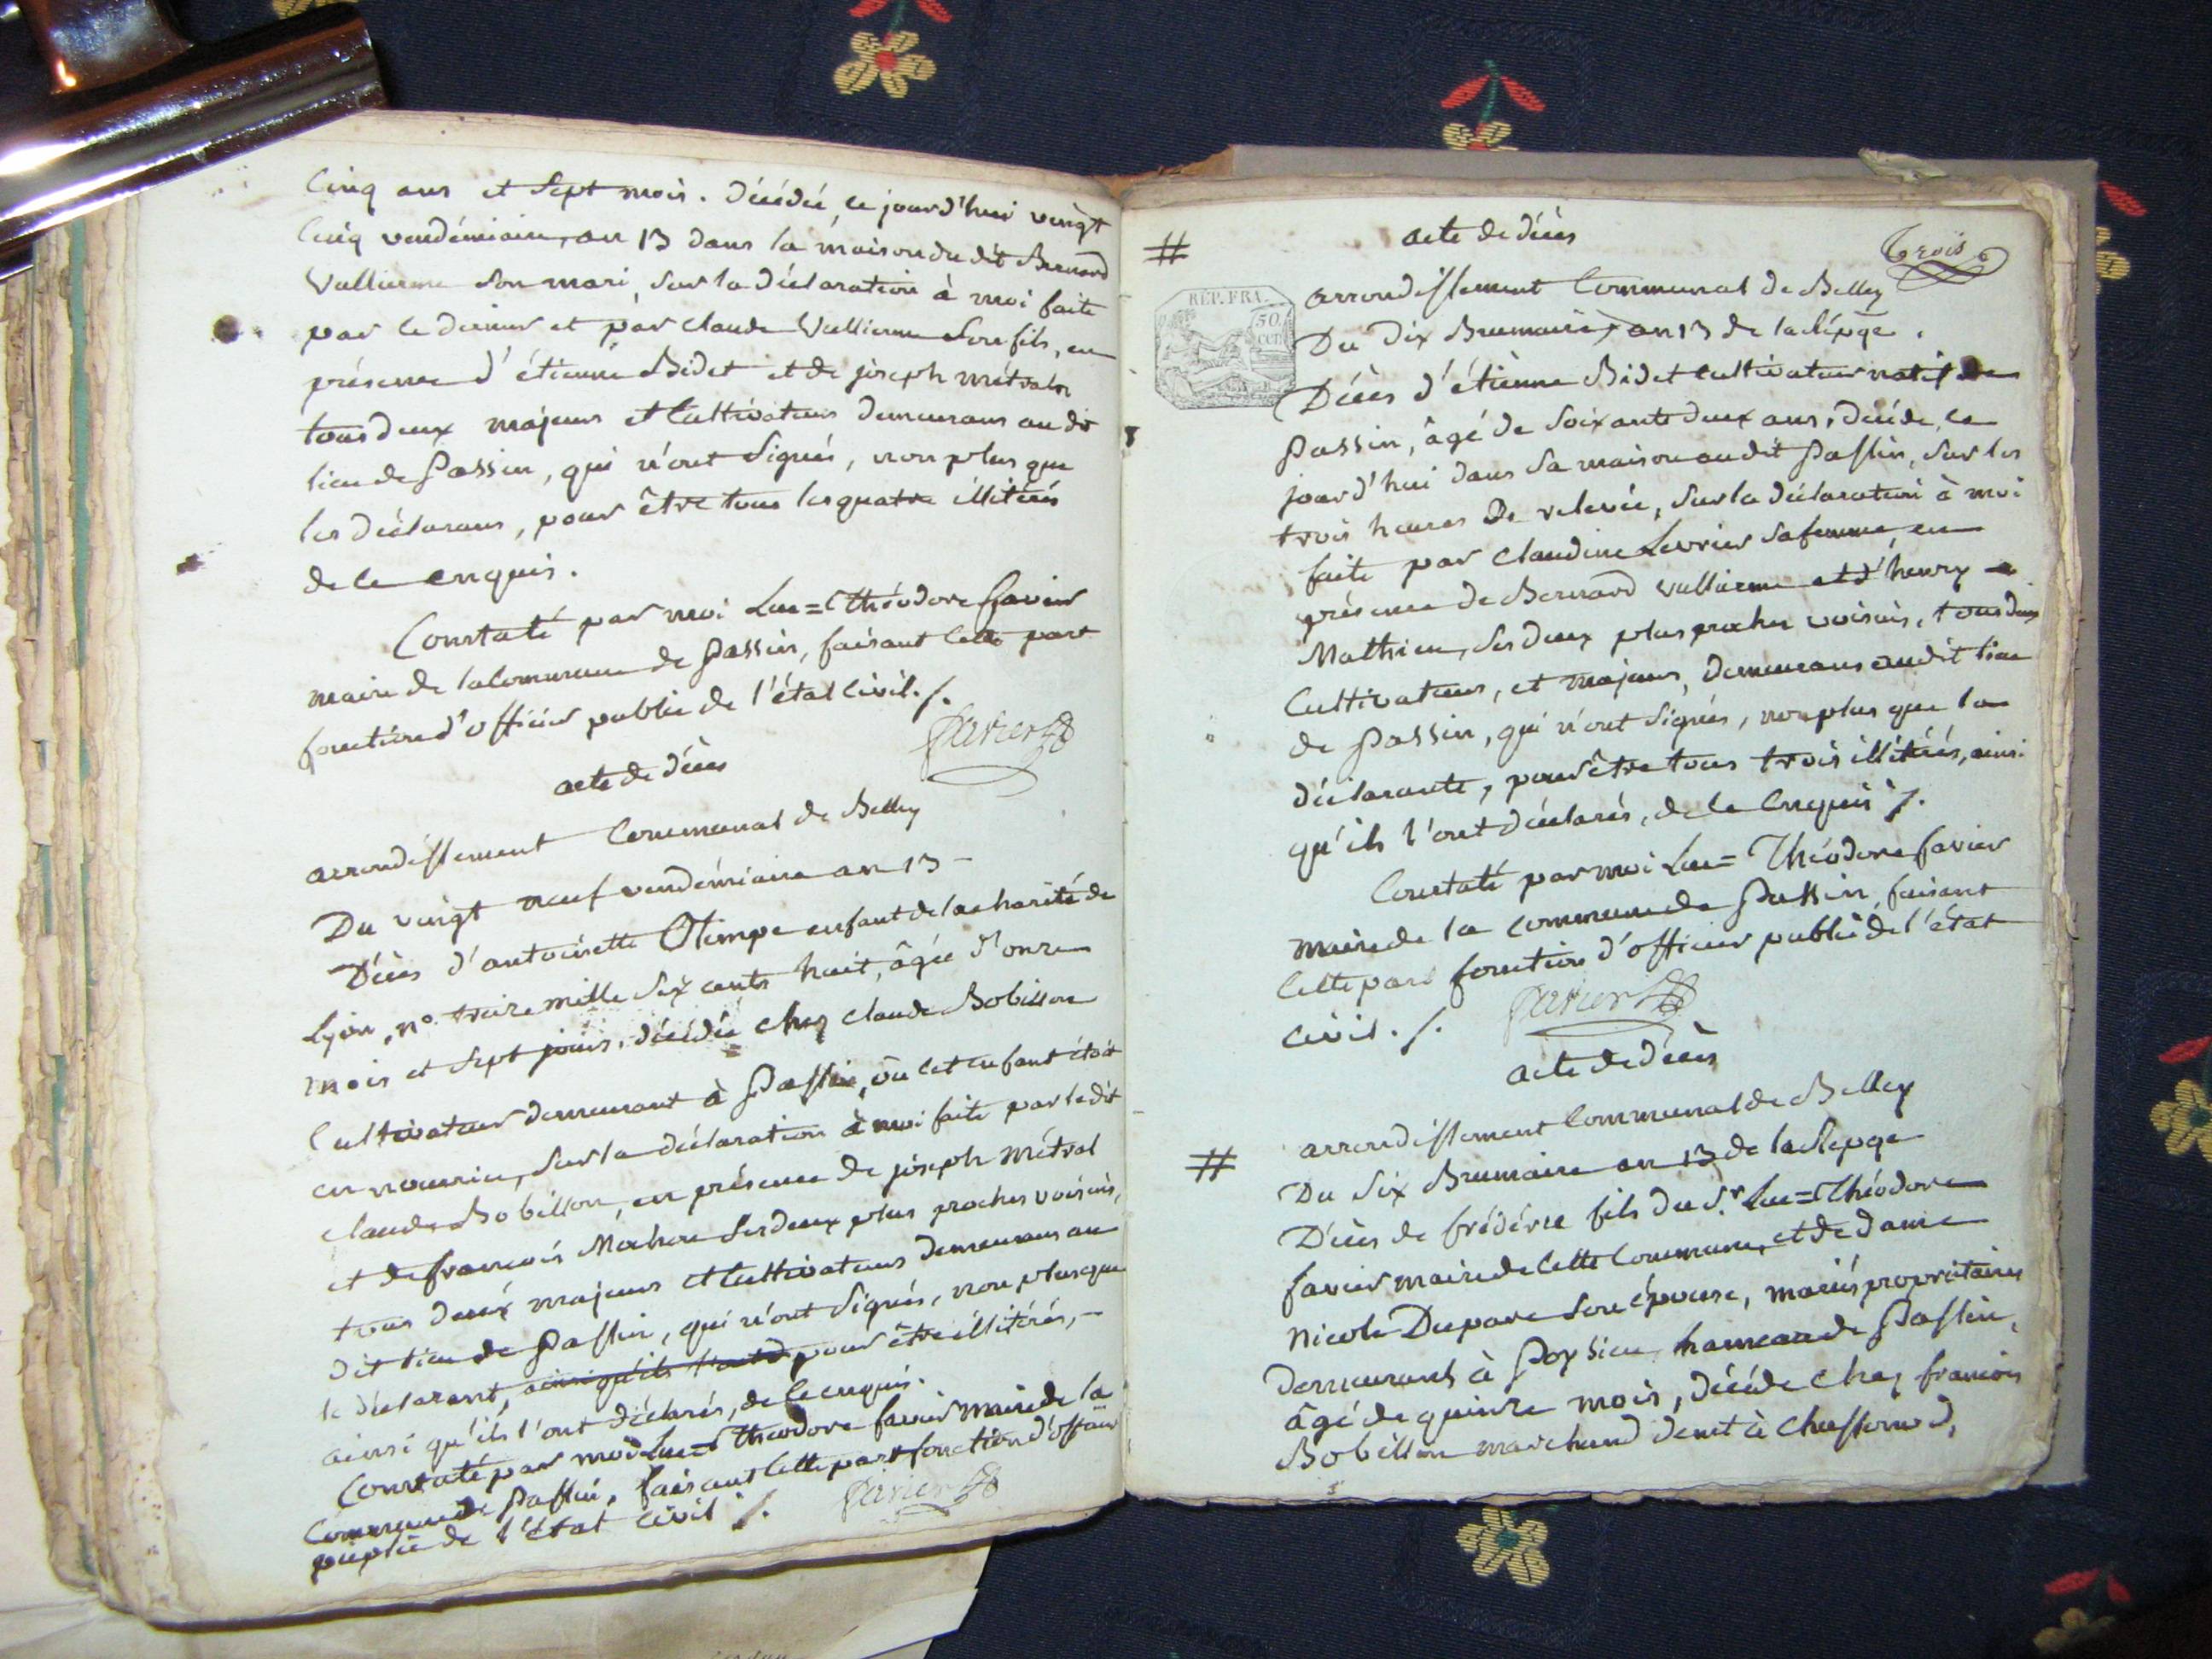 Cinq ans et sept mois. Décédée, ce jourd'hui vingt
cinq vendémiaire, an 13 dans la maison du dit Bernard
Vullierme son mari, sur la déclaration à moi faite
par le dernier et par claude Vullierme son fils, en
présence d'étienne Bidet et de joseph métral
tous deux majeurs et Cultivateurs demeurans au dit
lieu de Passin, qui n'ont signés, non plus que
les déclarans, pour être tous les quatre illitérés
de ce enquis.
Constaté par moi Luc=Théodore favier
maire de la Commune de Passin, faisant cette part
fonction d'officier public de l'état civil ./.
Favier
acte de décès
arrondissement Communal de Belley
Du vingt neuf vendémiaire an 13 -
Décès d'antoinette Olimpe enfant de la charité de
Lyon, n° treize mille six cents huit, âgée d'onze
mois et sept jours, décédée chez claude Bobillon
Cultivateur demeurant à Passin, où cet enfant étoit
en nourrice, sur la déclaration à moi faite par le dit
claude Bobillon, en présence de joseph métral
et de françois Mochon ses deux plus proches voisins,
tous deux majeurs et Cultivateurs demeurans au
dit lieu de Passin, qui n'ont signés, non plus que
le déclarant, ainsi qu'ils l'ont d pour être illitérés, -
ainsi qu'ils l'ont déclarés, de ce enquis.
Constaté par moi Luc=Théodore favier maire de la
Commune de Passin, faisant cette part fonction d'officier
public de l'état civil ./.
Favier
# acte de décès
Trois
RÉP. FRA.
50.
CEN.
arrondissement Communal de Belley
Du dix Brumaire, an 13 de la Répqe.
Décès d'étienne Bidet cultivateur natif de
Passin, âgé de soixante deux ans, décédé, ce
jourd'hui dans sa maison audit Passin, sur les
trois heures de relevée, sur la déclaration à moi
faite par claudine Levrier sa femme, en
présence de Bernard Vullierme et d'henry
Mathieu, ses deux plus proches voisins, tous deux
Cultivateurs, et majeurs, demeurans audit lieu
de Passin, qui n'ont signés, non plus que la
déclarante, pour être tous trois illitérés, ainsi
qu'ils l'ont déclarés, de ce enquis ./.
Constaté par moi Luc=Théodore favier
maire de la Commune de Passin, faisant
cette part fonction d'officier public de l'état
civil ./.
Favier
acte de décès
arrondissement Communal de Belley
# Du six Brumaire an 13 de la Repqe
Décès de frédéric fils du Sr. Luc=Théodore
favier maire de cette Commune, et de dame
Nicole Duparc son épouse, mariés propriétaires
demeurants à Poysieu, hameau de Passin,
âgé de quinze mois, décédé chez françois
Bobillon marchand demt à Chassonod,